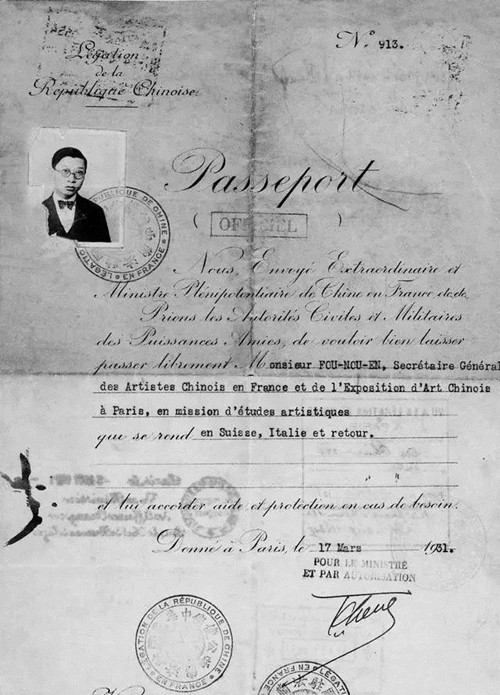 Légation
de la
République Chinoise
N° 913.
Passeport
( OFFICIEL )
Nous, Envoyé Extraordinaire et
Ministre Plénipotentiaire de Chine en France etc. etc.
Prions les Autorités Civiles et Militaires
des Puissances Amies, de vouloir bien laisser
passer librement Monsieur FOU-NOU-EN, Secrétaire Général
des Artistes Chinois en France et de l'Exposition d'Art Chinois
à Paris, en mission d'études artistiques
qui se rend en Suisse, Italie et retour.
" "
et lui accorder aide et protection en cas de besoin.
Donné à Paris, le 17 Mars 1931.
POUR LE MINISTRE
ET PAR AUTORISATION
LÉGATION DE LA RÉPUBLIQUE DE CHINE
EN FRANCE